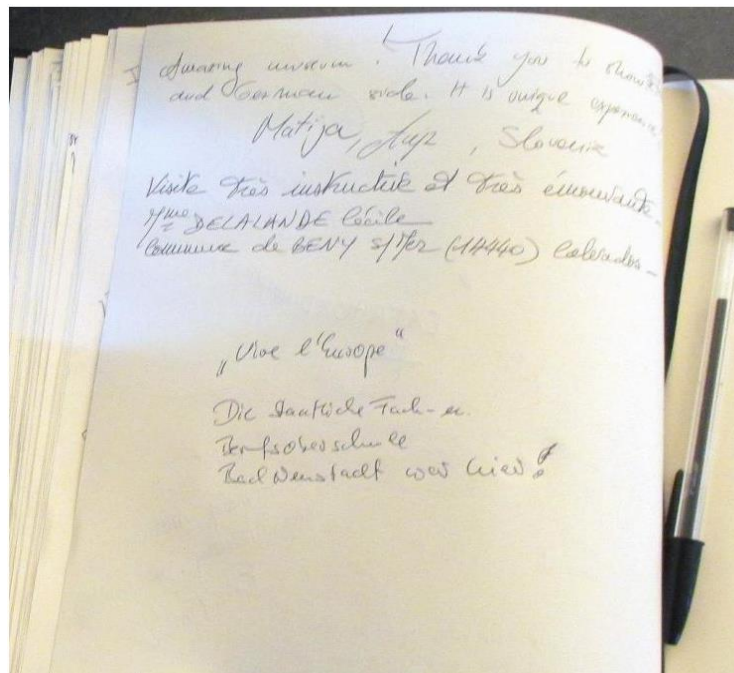 Amazing museum! Thank you to show
and German side. It is unique experience
Matija, , Slovenia
Visite très instructive et très émouvante.
Mme DELALANDE Cécile
Commune de BENY S/Mer (14440) Calvados
„Vive l'Europe“
Die Staatliche Fach- u.
Berufsoberschule
Bad Neustadt war hier!